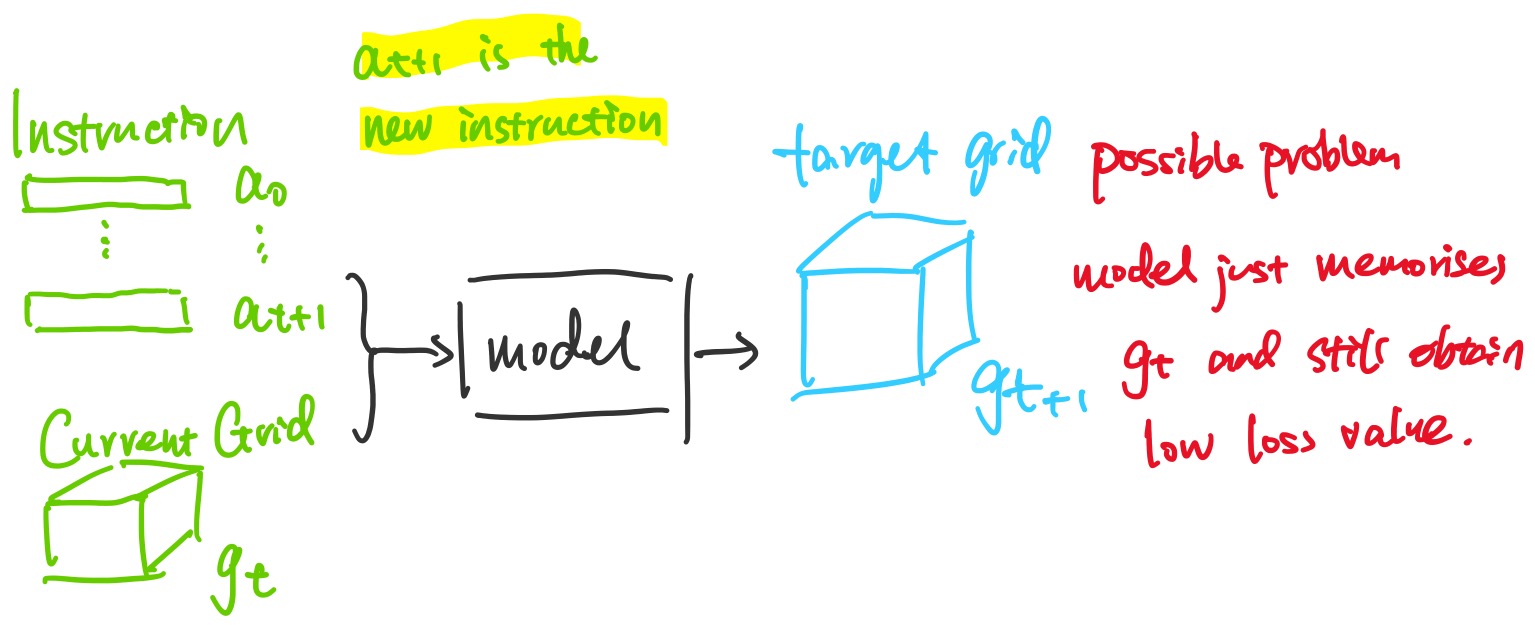 at+1 is the
new instruction
Instruction
a0
at+1
Current Grid
gt
model
target grid
gt+1
possible problem
model just memorises
gt and still obtain
low loss value.